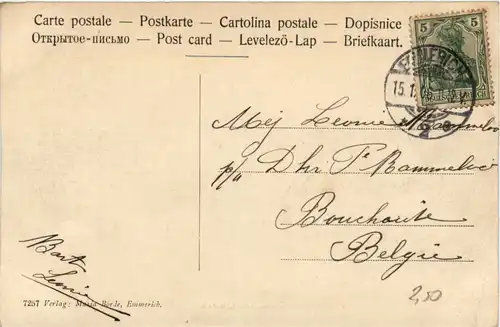 Carte postale – Postkarte – Cartolina postale – Dopisnice
Открытое-письмо – Post card – Levelező-Lap – Briefkaart.
5 5
EMMERICH
15.1
Mej Leonie
p/a Dhr Rammeloo
Bouchoute
Belgie
Bart
7257 Verlag: Maria Borle, Emmerich.
2,50